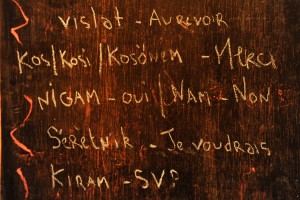 vislat - Aurevoir
Kos/Kosi/Kosonem - Merci
NIGAM - oui/NAM - NoN
Seretnik - Je voudrais
KIRAM - SVP